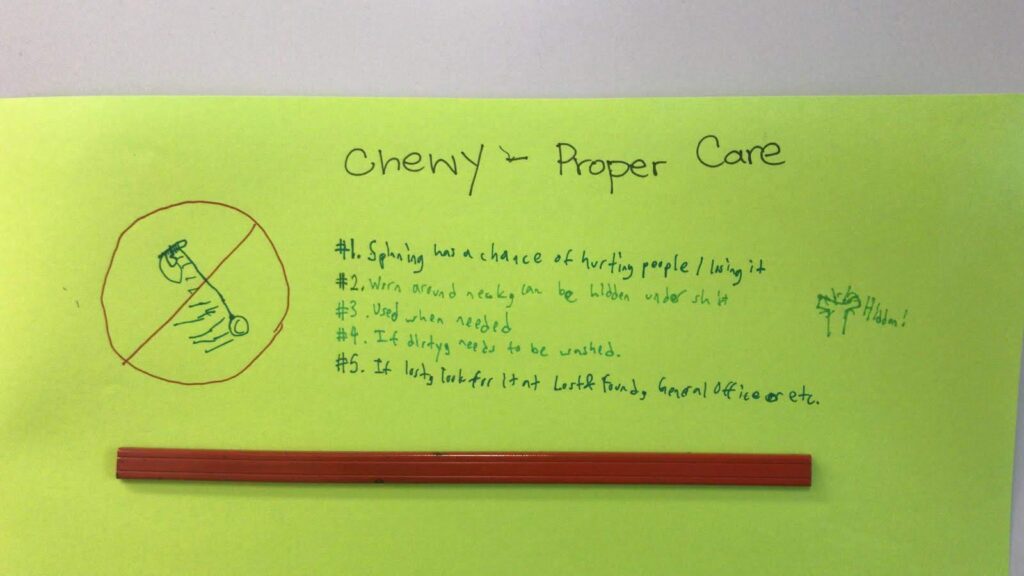 Chewy - Proper Care
#1. Spinning has a chance of hurting people / losing it
#2. Worn around neck, can be hidden under shirt
Hidden!
#3. Used when needed
#4. If dirty, needs to be washed.
#5. If lost, look for it at Lost & Found, General Office or etc.